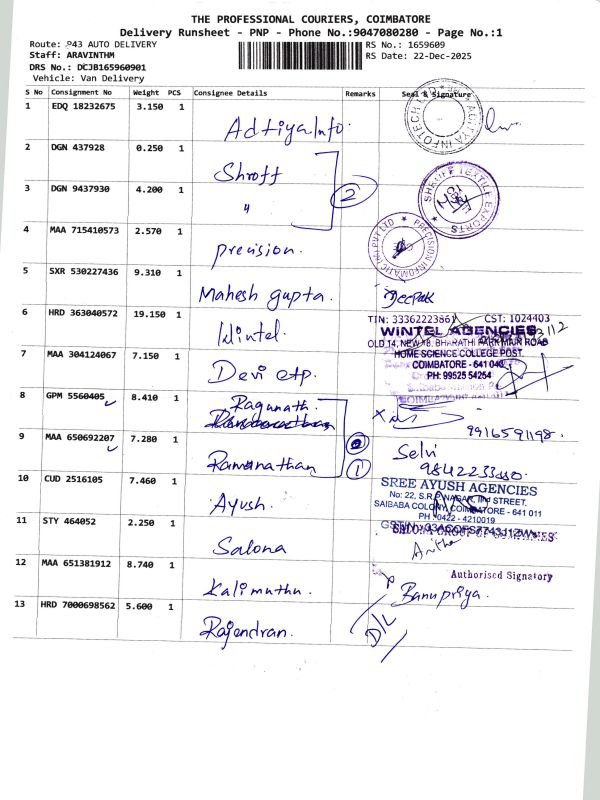 THE PROFESSIONAL COURIERS, COIMBATORE
Delivery Runsheet - PNP - Phone No.:9047080280 - Page No.:1
Route: P43 AUTO DELIVERY
RS No.: 1659609
Staff: ARAVINTHM
RS Date: 22-Dec-2025
DRS No.: DCJB165960901
Vehicle: Van Delivery
S No Consignment No Weight PCS Consignee Details Remarks Seal & Signature
1 EDQ 18232675 3.150 1 Adtiya Info.
ADITYA INFOTECH LTD
2 DGN 437928 0.250 1 Shroff
3 DGN 9437930 4.200 1 " 2
SHROFF TEXTILE EXPORTS
4 MAA 715410573 2.570 1 precision.
PRECISION INFOMATIC (M) PVT LTD
5 SXR 530227436 9.310 1 Mahesh gupta. Deepak
6 HRD 363040572 19.150 1 Wintel.
TIN: 33362223861 CST: 1024403
WINTEL AGENCIES
OLD 14, NEW 18, BHARATHI PARK MAIN ROAD
HOME SCIENCE COLLEGE POST,
COIMBATORE - 641 043
PH: 99525 54264
7 MAA 304124067 7.150 1 Devi etp.
8 GPM 5560405 8.410 1 Ragunath.
9916591198.
9 MAA 650692207 7.280 1 Ramanathan 1 Selvi
10 CUD 2516105 7.460 1 Ayush.
SREE AYUSH AGENCIES
No: 22, S.R.P. NAGAR, IInd STREET,
SAIBABA COLONY, COIMBATORE - 641 011
PH : 0422 - 4210019
11 STY 464052 2.250 1 Salona
Anitha
12 MAA 651381912 8.740 1 Kalimuthu.
Authorised Signatory
Banupriya.
13 HRD 7000698562 5.600 1 Rajendran. D/L